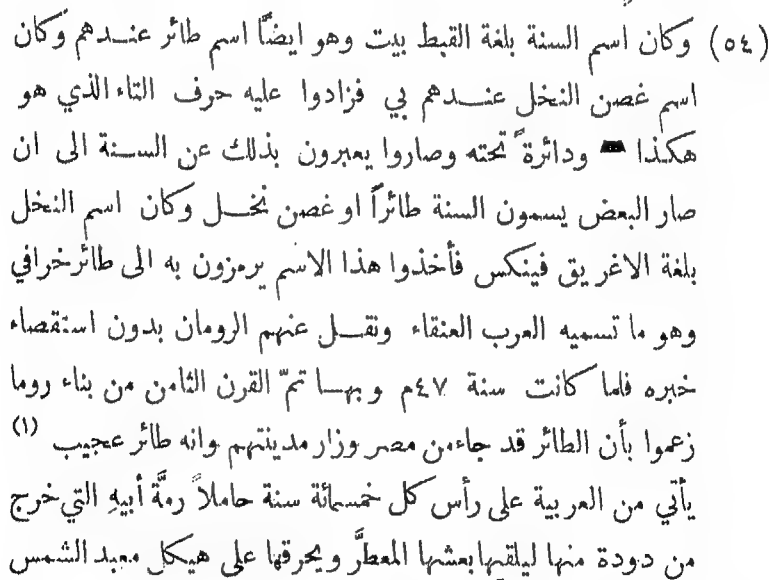 (٥٤) وكان اسم السنة بلغة القبط بيت وهو ايضًا اسم طائر عندهم وكان
اسم غصن النخل عندهم بي فزادوا عليه حرف التاء الذي هو
هكذا ودائرةً تحته وصاروا يعبرون بذلك عن السنة الى ان
صار البعض يسمون السنة طائراً او غصن نخل وكان اسم النخل
بلغة الاغريق فينكس فأخذوا هذا الاسم يرمزون به الى طائر خرافي
وهو ما تسميه العرب العنقاء ونقل عنهم الرومان بدون استقصاء
خبره فلما كانت سنة ٤٧م وبها تمّ القرن الثامن من بناء روما
زعموا بأن الطائر قد جاء من مصر وزار مدينتهم وانه طائر عجيب (١)
يأتي من العربية على رأس كل خمسمائة سنة حاملاً رمَّة أبيهِ التي خرج
من دودة منها ليلقيها بعشها المعطَّر ويحرقها على هيكل معبد الشمس